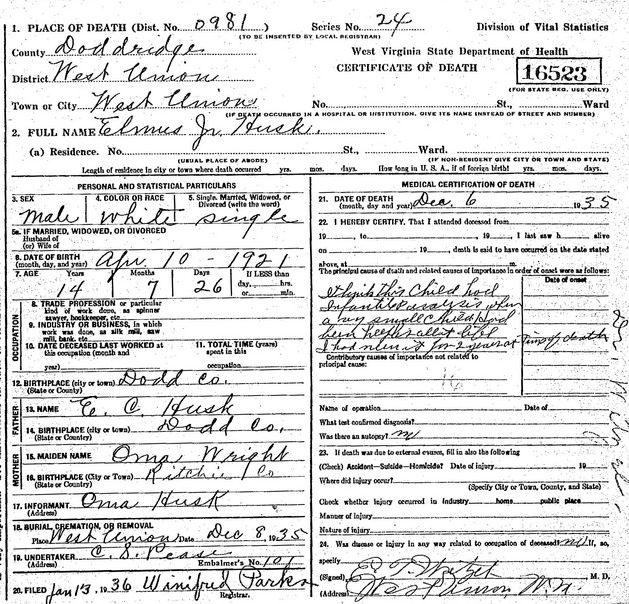 1. PLACE OF DEATH (Dist. No. 0981) Series No. 24 Division of Vital Statistics
(TO BE INSERTED BY LOCAL REGISTRAR)
County Doddridge West Virginia State Department of Health
District West Union CERTIFICATE OF DEATH 16523
(FOR STATE REG. USE ONLY)
Town or City West Union No. St., Ward
(IF DEATH OCCURRED IN A HOSPITAL OR INSTITUTION, GIVE ITS NAME INSTEAD OF STREET AND NUMBER)
2. FULL NAME Elmus Jr. Husk.
(a) Residence. No. St., Ward.
(USUAL PLACE OF ABODE) (IF NON-RESIDENT GIVE CITY OR TOWN AND STATE)
Length of residence in city or town where death occurred yrs. mos. days. How long in U. S. A., if of foreign birth? yrs. mos. days
PERSONAL AND STATISTICAL PARTICULARS
3. SEX 4. COLOR OR RACE 5. Single, Married, Widowed, or
Divorced (write the word)
Male White Single
5a. IF MARRIED, WIDOWED, OR DIVORCED
Husband of
(or) Wife of
6. DATE OF BIRTH
(month, day, and year) Apr 10 - 1921
7. AGE Years Months Days If LESS than
14 7 26 day, hrs.
or min.
OCCUPATION
8. TRADE, PROFESSION or particular
kind of work done, as spinner
sawyer, bookkeeper, etc.
9. INDUSTRY OR BUSINESS, in which
work was done, as silk mill, saw
mill, bank, etc.
10. DATE DECEASED LAST WORKED at
this occupation (month and
year)
11. TOTAL TIME (years)
spent in this
occupation
12. BIRTHPLACE (city or town) Dodd Co.
(State or County)
FATHER
13. NAME E. C. Husk
14. BIRTHPLACE (city or town) Dodd Co.
(State or County)
MOTHER
15. MAIDEN NAME Oma Wright
16. BIRTHPLACE (City or Town) Ritchie Co
(State or County)
17. INFORMANT Oma Husk
(Address)
18. BURIAL, CREMATION, OR REMOVAL
Place West Union Date Dec 8, 1935
19. UNDERTAKER C. S. Pease
(Address) Embalmer's No. 101
20. FILED Jan 13, 1936 Winifred Parks
Registrar.
MEDICAL CERTIFICATION OF DEATH
21. DATE OF DEATH
(month, day, and year) Dec. 6 1935
22. I HEREBY CERTIFY, That I attended deceased from
19 , to , 19 , I last saw h alive
on 19 , death is said to have occurred on the date stated
above, at m.
The principal cause of death and related causes of importance in order of onset were as follows:
Date of onset
this Child had
Infantile Paralysis when
a very small Child & had
been helpless all life
Time of death
Contributory causes of importance not related to
principal cause:
Name of operation Date of
What test confirmed diagnosis?
Was there an autopsy? no
23. If death was due to external causes, fill in also the following
(Check) Accident—Suicide—Homicide? Date of injury 19
Where did injury occur?
(Specify City or Town, County, and State)
Check whether injury occurred in Industry home public place.
Manner of injury
Nature of injury
24. Was disease or injury in any way related to occupation of deceased? no If, so,
specify
(Signed) M. D.
(Address) West Union W. Va.